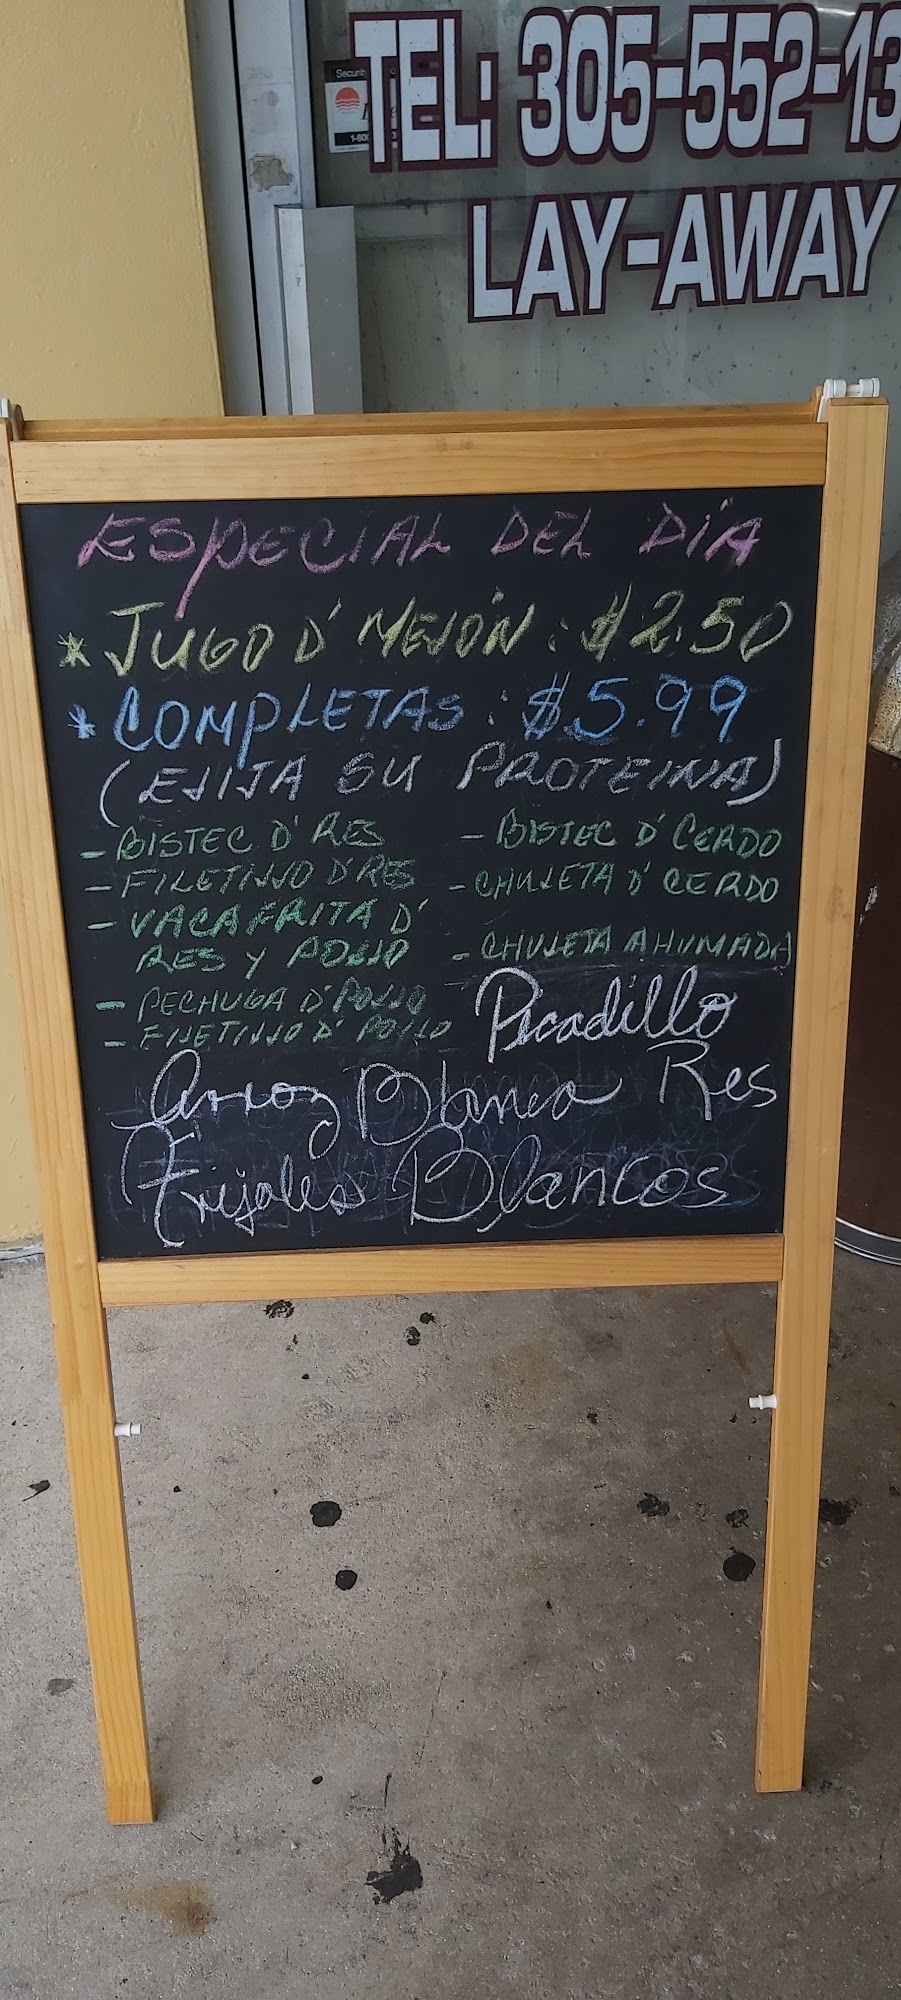 Security
1-800
TEL: 305-552-13
LAY-AWAY
ESPECIAL DEL DÍA
* JUGO D' MELÓN : $2.50
* COMPLETAS : $5.99
(ELIJA SU PROTEINA)
- BISTEC D' RES
- FILETILLO D' RES
- VACA FRITA D'
RES Y POLLO
- PECHUGA D' POLLO
- FILETILLO D' POLLO
- BISTEC D' CERDO
- CHULETA D' CERDO
- CHULETA AHUMADA
Picadillo
Res
Arroz Blanco
Frijoles Blancos